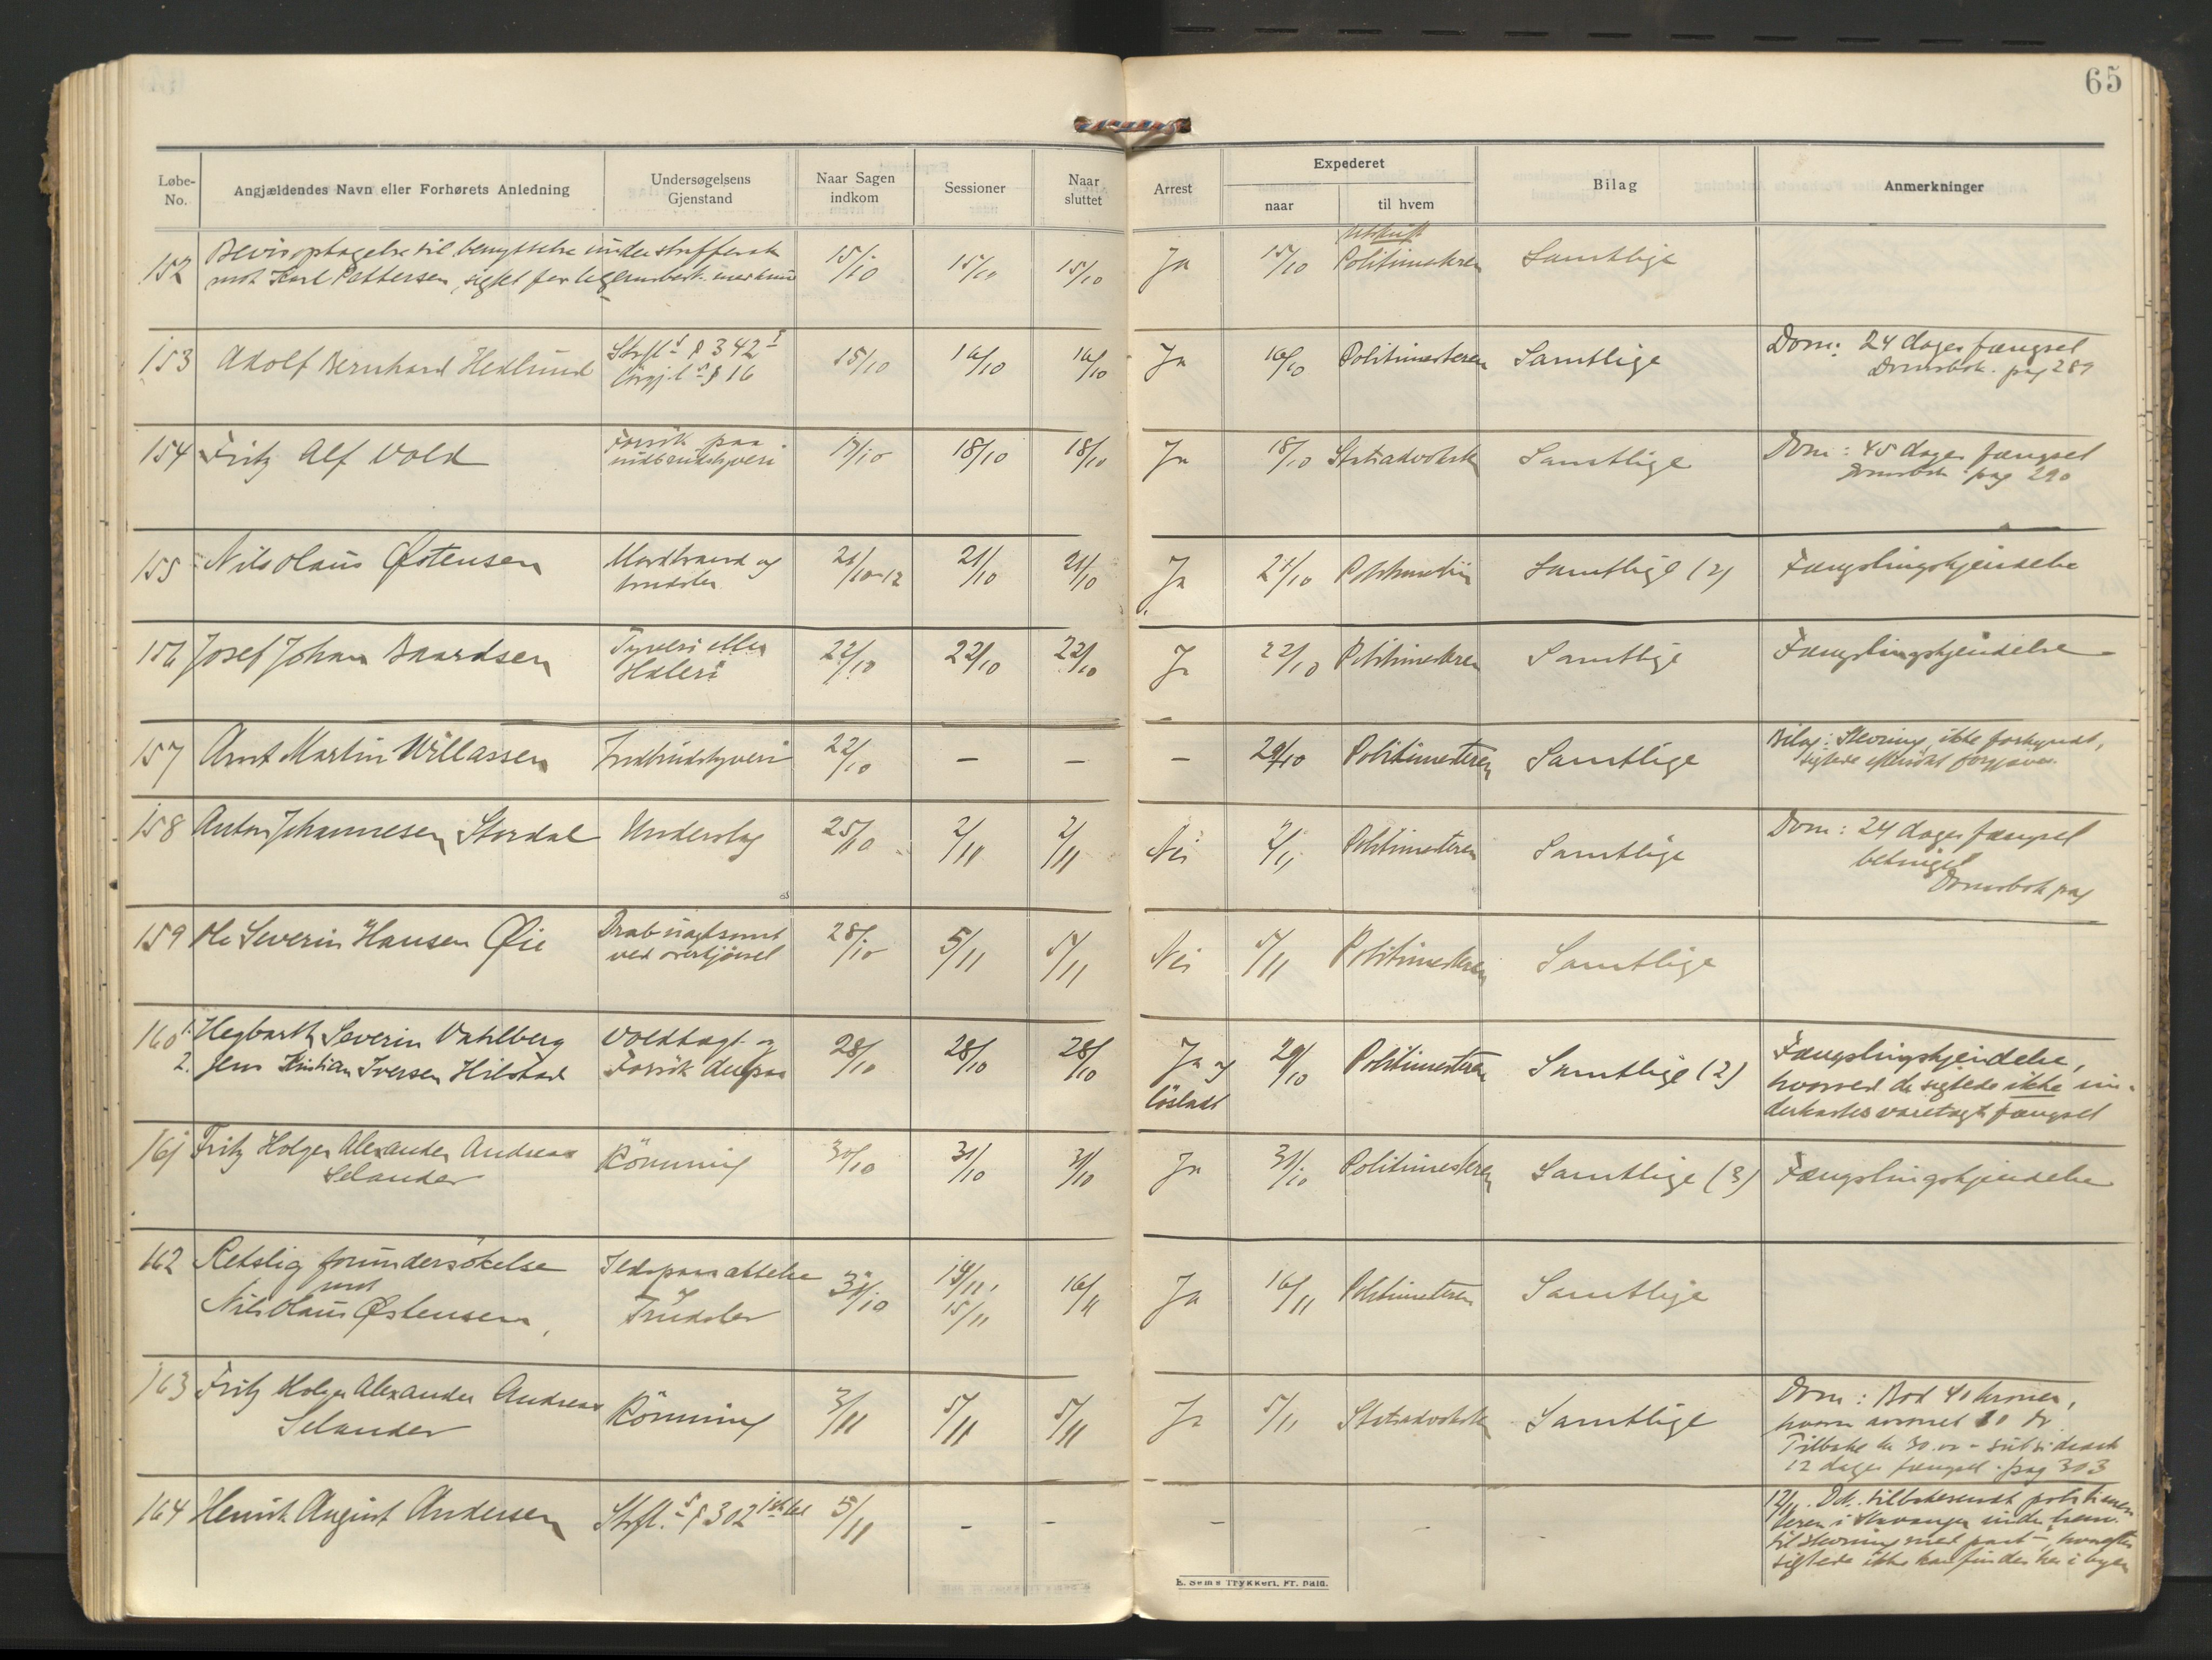 65
Løbe-No. Angjældendes Navn eller Forhørets Anledning Undersøgelsens Gjenstand Naar Sagen indkom Sessioner Naar sluttet Arrest Expederet naar til hvem Bilag Anmerkninger
152 Bevisoptagelse til benyttelse under straffesak 15/10 15/10 15/10 Ja 15/10 Utskrift Politimesteren Samtlige
mot Karl Pettersen, sigtet for
153 Adolf Bernhard Hedlund Strfl.s § 342 I 15/10 16/10 16/10 Ja 16/10 Politimesteren Samtlige Dom: 24 dages fængsel
Løsgj.l.s § 16 Domsbok. pag 289
154 Fritz Alf Vold Forsøk paa indbrudstyveri 17/10 18/10 18/10 Ja 18/10 Statsadvokaten Samtlige Dom: 45 dages fængsel
Domsbok pag 290
155 Nils Olaus Østensen Mordbrand og trudsler 21/10-12 21/10 21/10 Ja 21/10 Politimesteren Samtlige (2) Fængslingskjendelse
156 Josef Johan Baardsen Tyveri eller Heleri 22/10 22/10 22/10 Ja 22/10 Politimesteren Samtlige Fængslingskjendelse
157 Arnt Martin Willassen Indbrudstyveri 22/10 – – – 29/10 Politimesteren Samtlige Bilag: Stevning ikke forkyndt,
sigtede eftersøkt forgjæves.
158 Anton Johannesen Stordal Underslag 25/10 2/11 2/11 Nei 2/11 Politimesteren Samtlige Dom: 24 dages fængsel
betinget
Domsbok pag
159 Ole Severin Hansen Øie Drab uagtsomt 28/10 5/11 5/11 Nei 5/11 Politimesteren Samtlige
ved overkjørsel
160 1. Hegbarth Severin Vahlberg Voldtægt og 28/10 28/10 28/10 Ja og 29/10 Politimesteren Samtlige (2) Fængslingskjendelse,
2. Jens Kristian Iversen Hilstad Forsøk derpaa løsladt hvorved de sigtede ikke un-
derkastes varetægtsfængsel
161 Fritz Holger Alexander Andreas Rømning 30/10 31/10 31/10 Ja 31/10 Politimesteren Samtlige (3) Fængslingskjendelse
Selander
162 Retslig forundersøkelse Ildspaasættelse 31/10 14/11, 16/11 Ja 16/11 Politimesteren Samtlige
mot og 15/11
Nils Olaus Østensen, Trudsler
163 Fritz Holger Alexander Andreas Rømning 3/11 5/11 5/11 Ja 5/11 Statsadvokaten Samtlige Dom: Bod 40 kroner,
Selander hvorav avsonet 10 kr
Tilbake kr 30.00 – subsidiært
12 dages fængsel. pag 303
164 Henrik August Andersen Strfl.s § 302 1ste led 5/11 – – – – – 12/11. Dok. tilbakesendt politimes-
teren i Stavanger under henv.
til stevning med paat–, hvorefter
sigtede ikke kan findes her i byen
E. Sem's Trykkeri, Fr.hald.